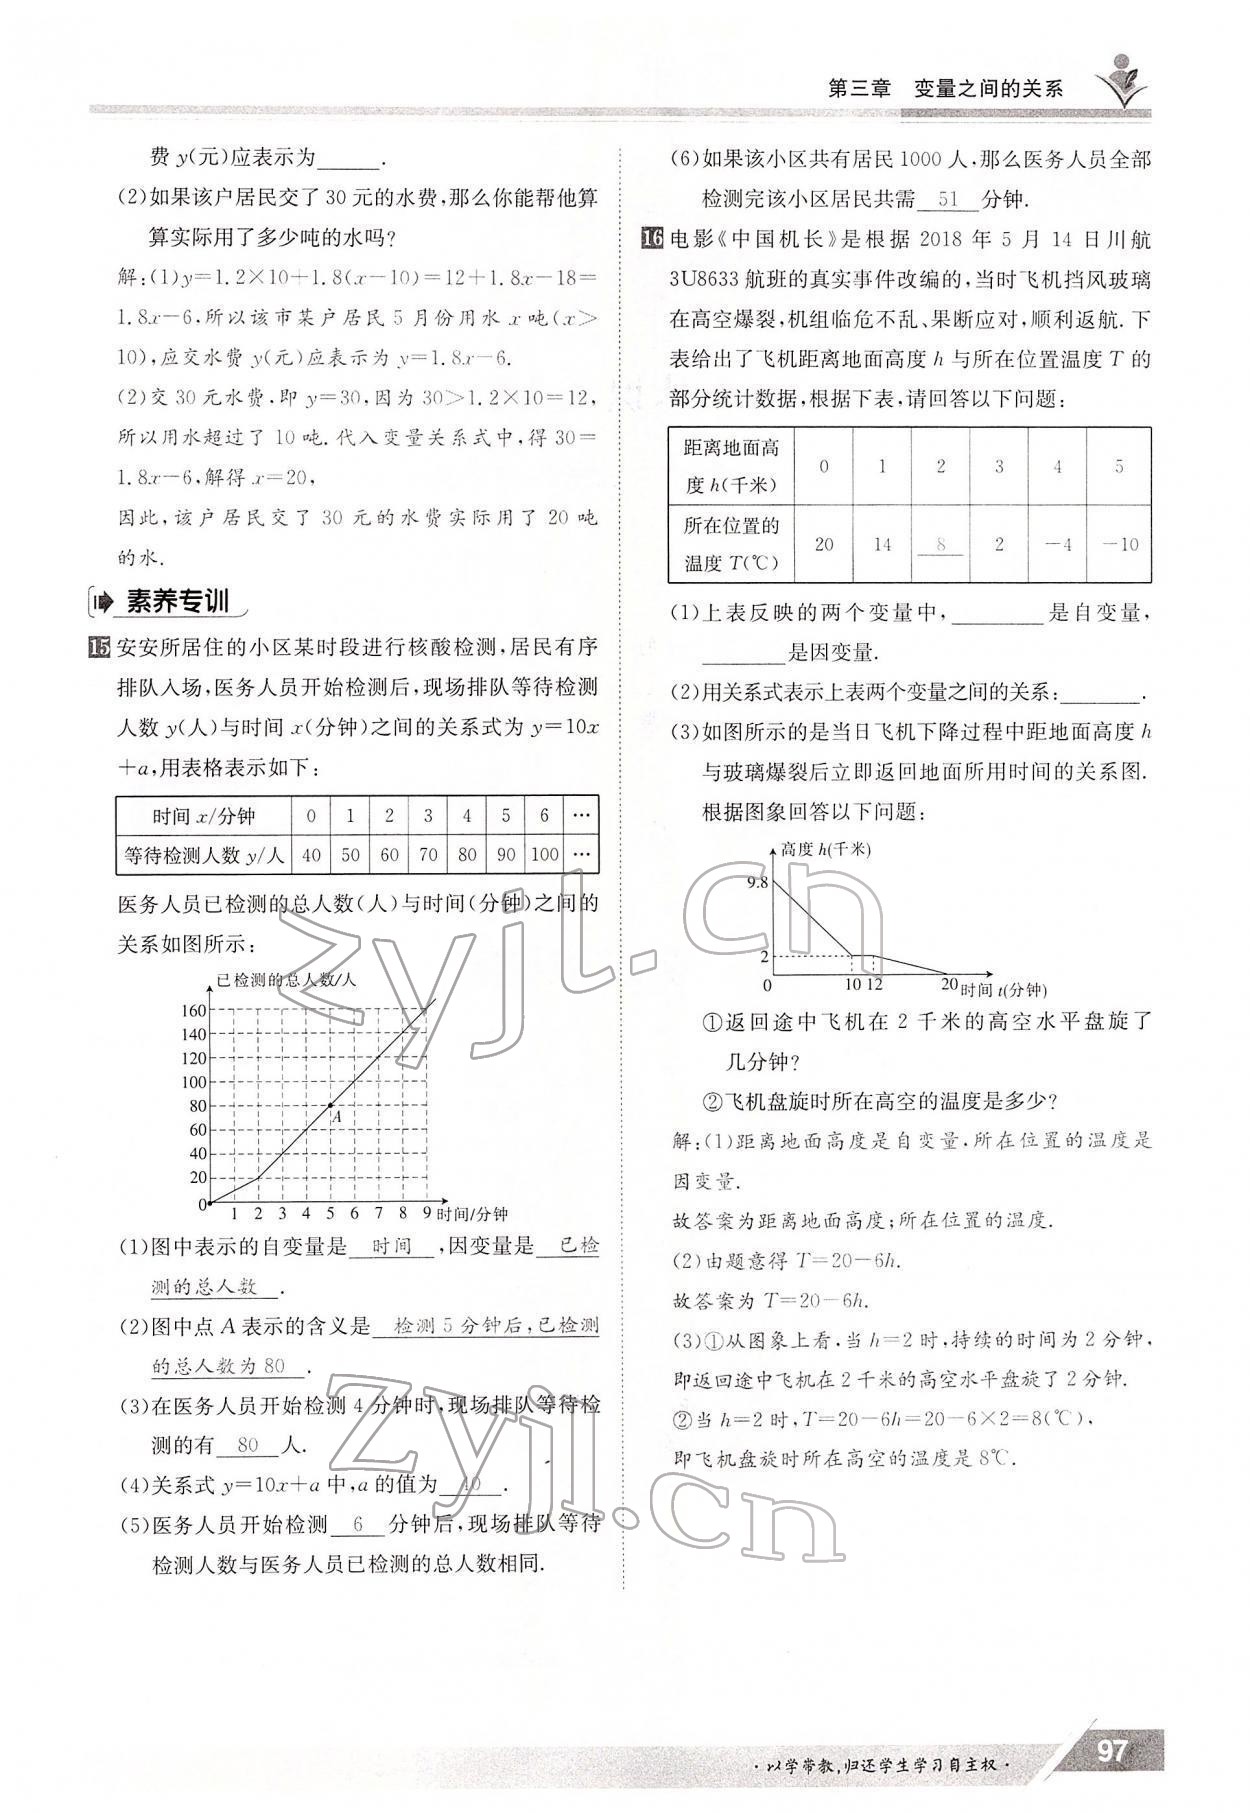 第三章　变量之间的关系
费 y(元)应表示为______.
(2)如果该户居民交了 30 元的水费,那么你能帮他算
算实际用了多少吨的水吗?
解:(1)y=1.2×10+1.8(x-10)=12+1.8x-18=
1.8x-6,所以该市某户居民 5 月份用水 x 吨(x>
10),应交水费 y(元)应表示为 y=1.8x-6.
(2)交 30 元水费,即 y=30,因为 30>1.2×10=12,
所以用水超过了 10 吨.代入变量关系式中,得 30=
1.8x-6,解得 x=20,
因此,该户居民交了 30 元的水费实际用了 20 吨
的水.
素养专训
15 安安所居住的小区某时段进行核酸检测,居民有序
排队入场,医务人员开始检测后,现场排队等待检测
人数 y(人)与时间 x(分钟)之间的关系式为 y=10x
+a,用表格表示如下:
时间 x/分钟 0 1 2 3 4 5 6 …
等待检测人数 y/人 40 50 60 70 80 90 100 …
医务人员已检测的总人数(人)与时间(分钟)之间的
关系如图所示:
已检测的总人数/人
160
140
120
100
80
A
60
40
20
0
1 2 3 4 5 6 7 8 9 时间/分钟
(1)图中表示的自变量是 时间 ,因变量是 已检
测的总人数 .
(2)图中点 A 表示的含义是 检测 5 分钟后,已检测
的总人数为 80 .
(3)在医务人员开始检测 4 分钟时,现场排队等待检
测的有 80 人.
(4)关系式 y=10x+a 中,a 的值为 40 .
(5)医务人员开始检测 6 分钟后,现场排队等待
检测人数与医务人员已检测的总人数相同.
(6)如果该小区共有居民 1000 人,那么医务人员全部
检测完该小区居民共需 51 分钟.
16 电影《中国机长》是根据 2018 年 5 月 14 日川航
3U8633 航班的真实事件改编的,当时飞机挡风玻璃
在高空爆裂,机组临危不乱、果断应对,顺利返航.下
表给出了飞机距离地面高度 h 与所在位置温度 T 的
部分统计数据,根据下表,请回答以下问题:
距离地面高
度 h(千米) 0 1 2 3 4 5
所在位置的
温度 T(℃) 20 14 8 2 -4 -10
(1)上表反映的两个变量中,________是自变量,
________是因变量.
(2)用关系式表示上表两个变量之间的关系:________.
(3)如图所示的是当日飞机下降过程中距地面高度 h
与玻璃爆裂后立即返回地面所用时间的关系图.
根据图象回答以下问题:
高度 h(千米)
9.8
2
0 10 12 20 时间 t(分钟)
①返回途中飞机在 2 千米的高空水平盘旋了
几分钟?
②飞机盘旋时所在高空的温度是多少?
解:(1)距离地面高度是自变量,所在位置的温度是
因变量.
故答案为距离地面高度;所在位置的温度.
(2)由题意得 T=20-6h.
故答案为 T=20-6h.
(3)①从图象上看,当 h=2 时,持续的时间为 2 分钟,
即返回途中飞机在 2 千米的高空水平盘旋了 2 分钟.
②当 h=2 时,T=20-6h=20-6×2=8(℃),
即飞机盘旋时所在高空的温度是 8℃.
zyjl.cn
zyjl.cn
·以学带教,归还学生学习自主权·
97